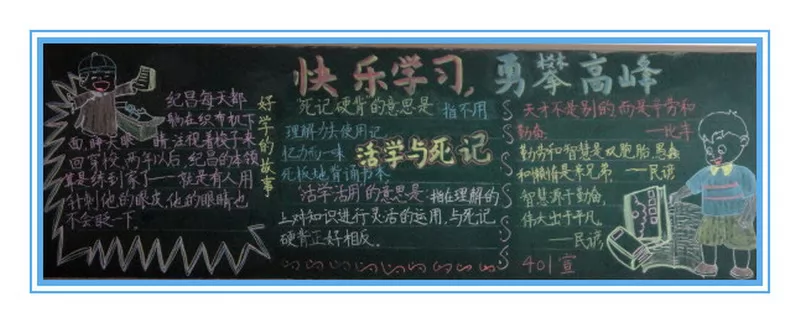 快乐学习,勇攀高峰
好学的故事
纪昌每天都
躺在织布机下
面,睁大眼睛注视着梭子来
回穿梭,两年以后,纪昌的本领
算是练到家了——就是有人用
针刺他的眼皮,他的眼睛也
不会眨一下。
活学与死记
死记硬背的意思是指不用
理解力去使用记
忆力而一味
死板地背诵书本
活学活用的意思是指在理解的
上对知识进行灵活的运用,与死记
硬背正好相反。
天才不是别的而是辛劳和
勤奋。
勤劳和智慧是双胞胎,愚蠢
和懒惰是亲兄弟。——民谚
智慧源于勤奋,
伟大出于平凡。
——民谚
401宣